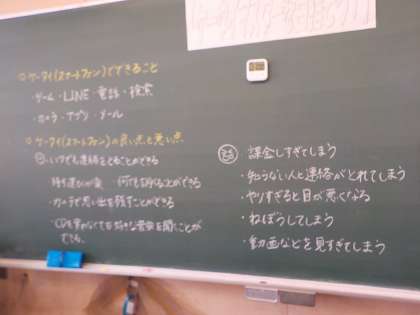 ◎ケータイ(スマートフォン)でできること
・ゲーム・LINE・電話・検索
・カメラ・アプリ・メール
◎ケータイ(スマートフォン)の良い点と悪い点
いつでも連絡をとることができる
持ち運びが楽 何でも調べることができる
・カメラで思い出を残すことができる
・CDを買わなくても好きな音楽を聞くことができる。
課金しすぎてしまう
・知らない人と連絡がとれてしまう
・やりすぎると目が悪くなる
・ねぼうしてしまう
・動画などを見すぎてしまう